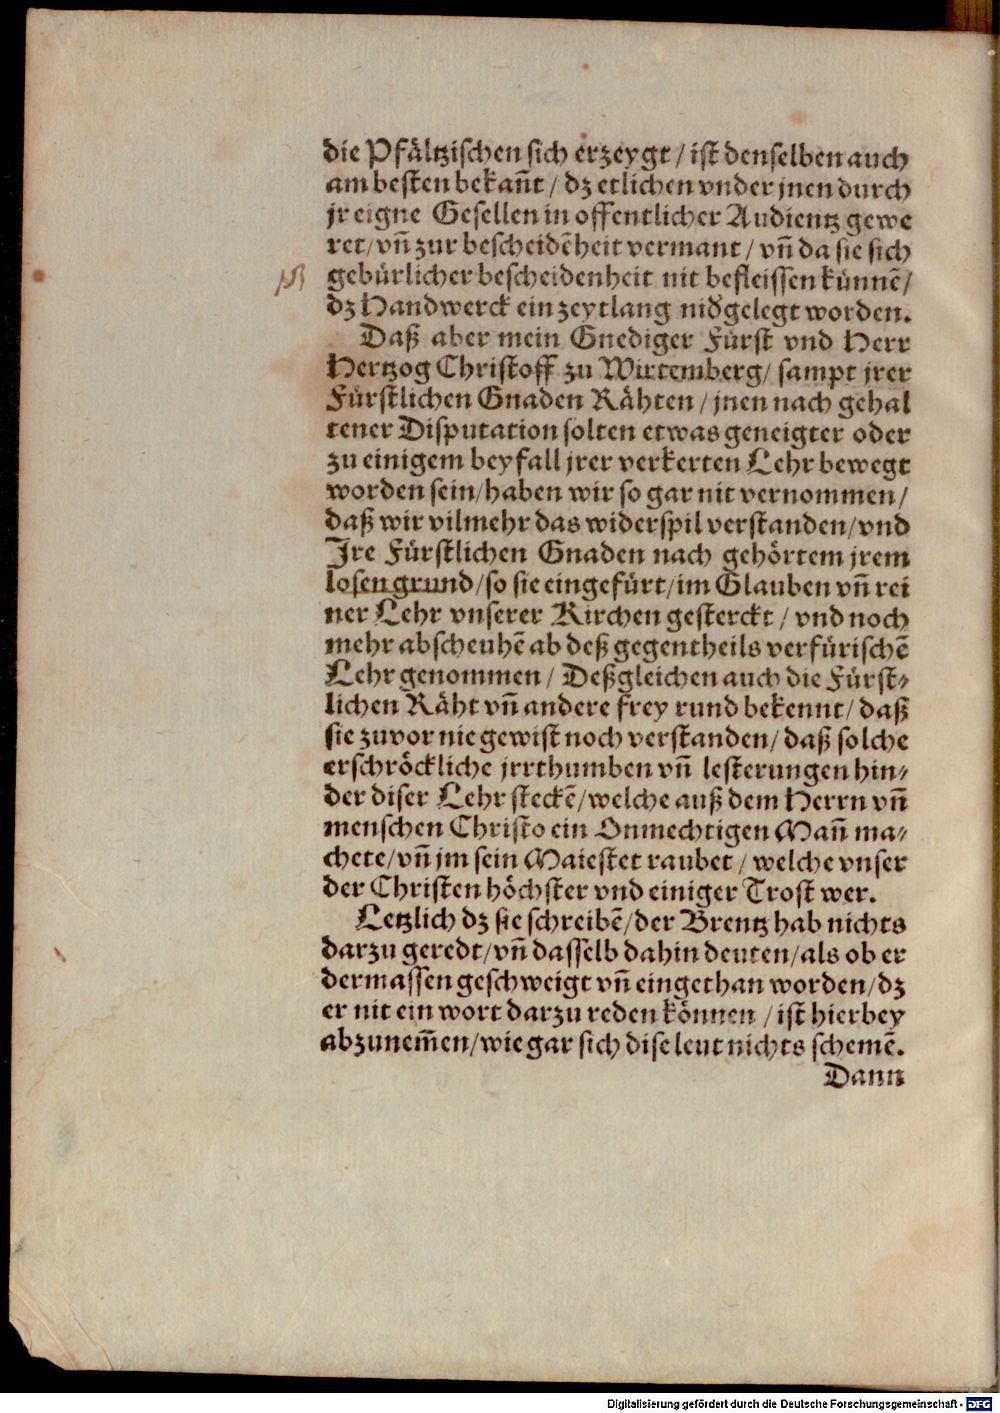 die Pfältzischen sich erzeygt / ist denselben auch
am besten bekañt / dz etlichen vnder jnen durch
jr eigne Gesellen in offentlicher Audientz gewe
ret / vñ zur bescheidẽheit vermant / vñ da sie sich
gebürlicher bescheidenheit nit befleissen künnẽ /
dz Handwerck ein zeytlang nidgelegt worden.
Daß aber mein Gnediger Fürst vnd Herr
Hertzog Christoff zu Wirtemberg / sampt jrer
Fürstlichen Gnaden Rähten / jnen nach gehal
tener Disputation solten etwas geneigter oder
zu einigem beyfall jrer verkerten Lehr bewegt
worden sein / haben wir so gar nit vernommen /
daß wir vilmehr das widerspil verstanden / vnd
Jre Fürstlichen Gnaden nach gehörtem jrem
losen grund / so sie eingefürt / im Glauben vñ rei
ner Lehr vnserer Kirchen gesterckt / vnd noch
mehr abscheuhẽ ab deß gegentheils verfürischẽ
Lehr genommen / Deßgleichen auch die Fürst⸗
lichen Räht vñ andere frey rund bekennt / daß
sie zuvor nie gewist noch verstanden / daß solche
erschröckliche jrrthumben vñ lesterungen hin⸗
der diser Lehr steckẽ / welche auß dem Herrn vñ
menschen Christo ein Onmechtigen Mañ ma⸗
chete / vñ jm sein Maiestet raubet / welche vnser
der Christen höchster vnd einiger Trost wer.
Letzlich dz sie schreibẽ / der Brentz hab nichts
darzu geredt / vñ dasselb dahin deuten / als ob er
dermassen geschweigt vñ eingethan worden / dz
er nit ein wort darzu reden können / ist hierbey
abzunem̃en / wie gar sich dise leut nichts schemẽ.
Dann
Digitalisierung gefördert durch die Deutsche Forschungsgemeinschaft - DFG